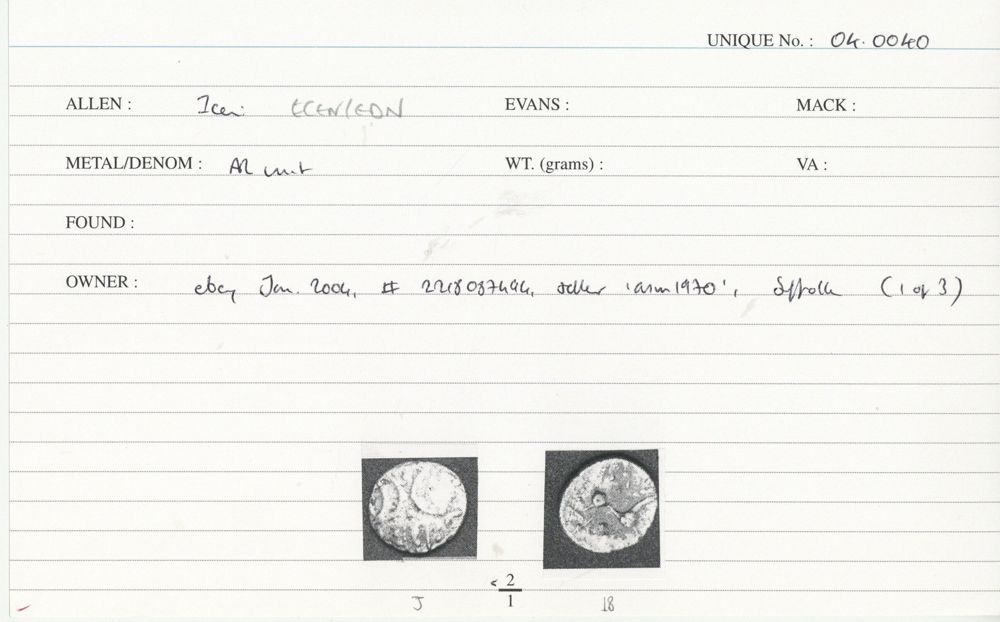 UNIQUE No. : 04.0040
ALLEN : Iceni ECEN/EDN EVANS : MACK :
METAL/DENOM : AR unit WT. (grams) : VA :
FOUND :
OWNER : ebay Jan. 2004, # 2218087494, seller 'asm1970', Suffolk (1 of 3)
< 2
1
J 18